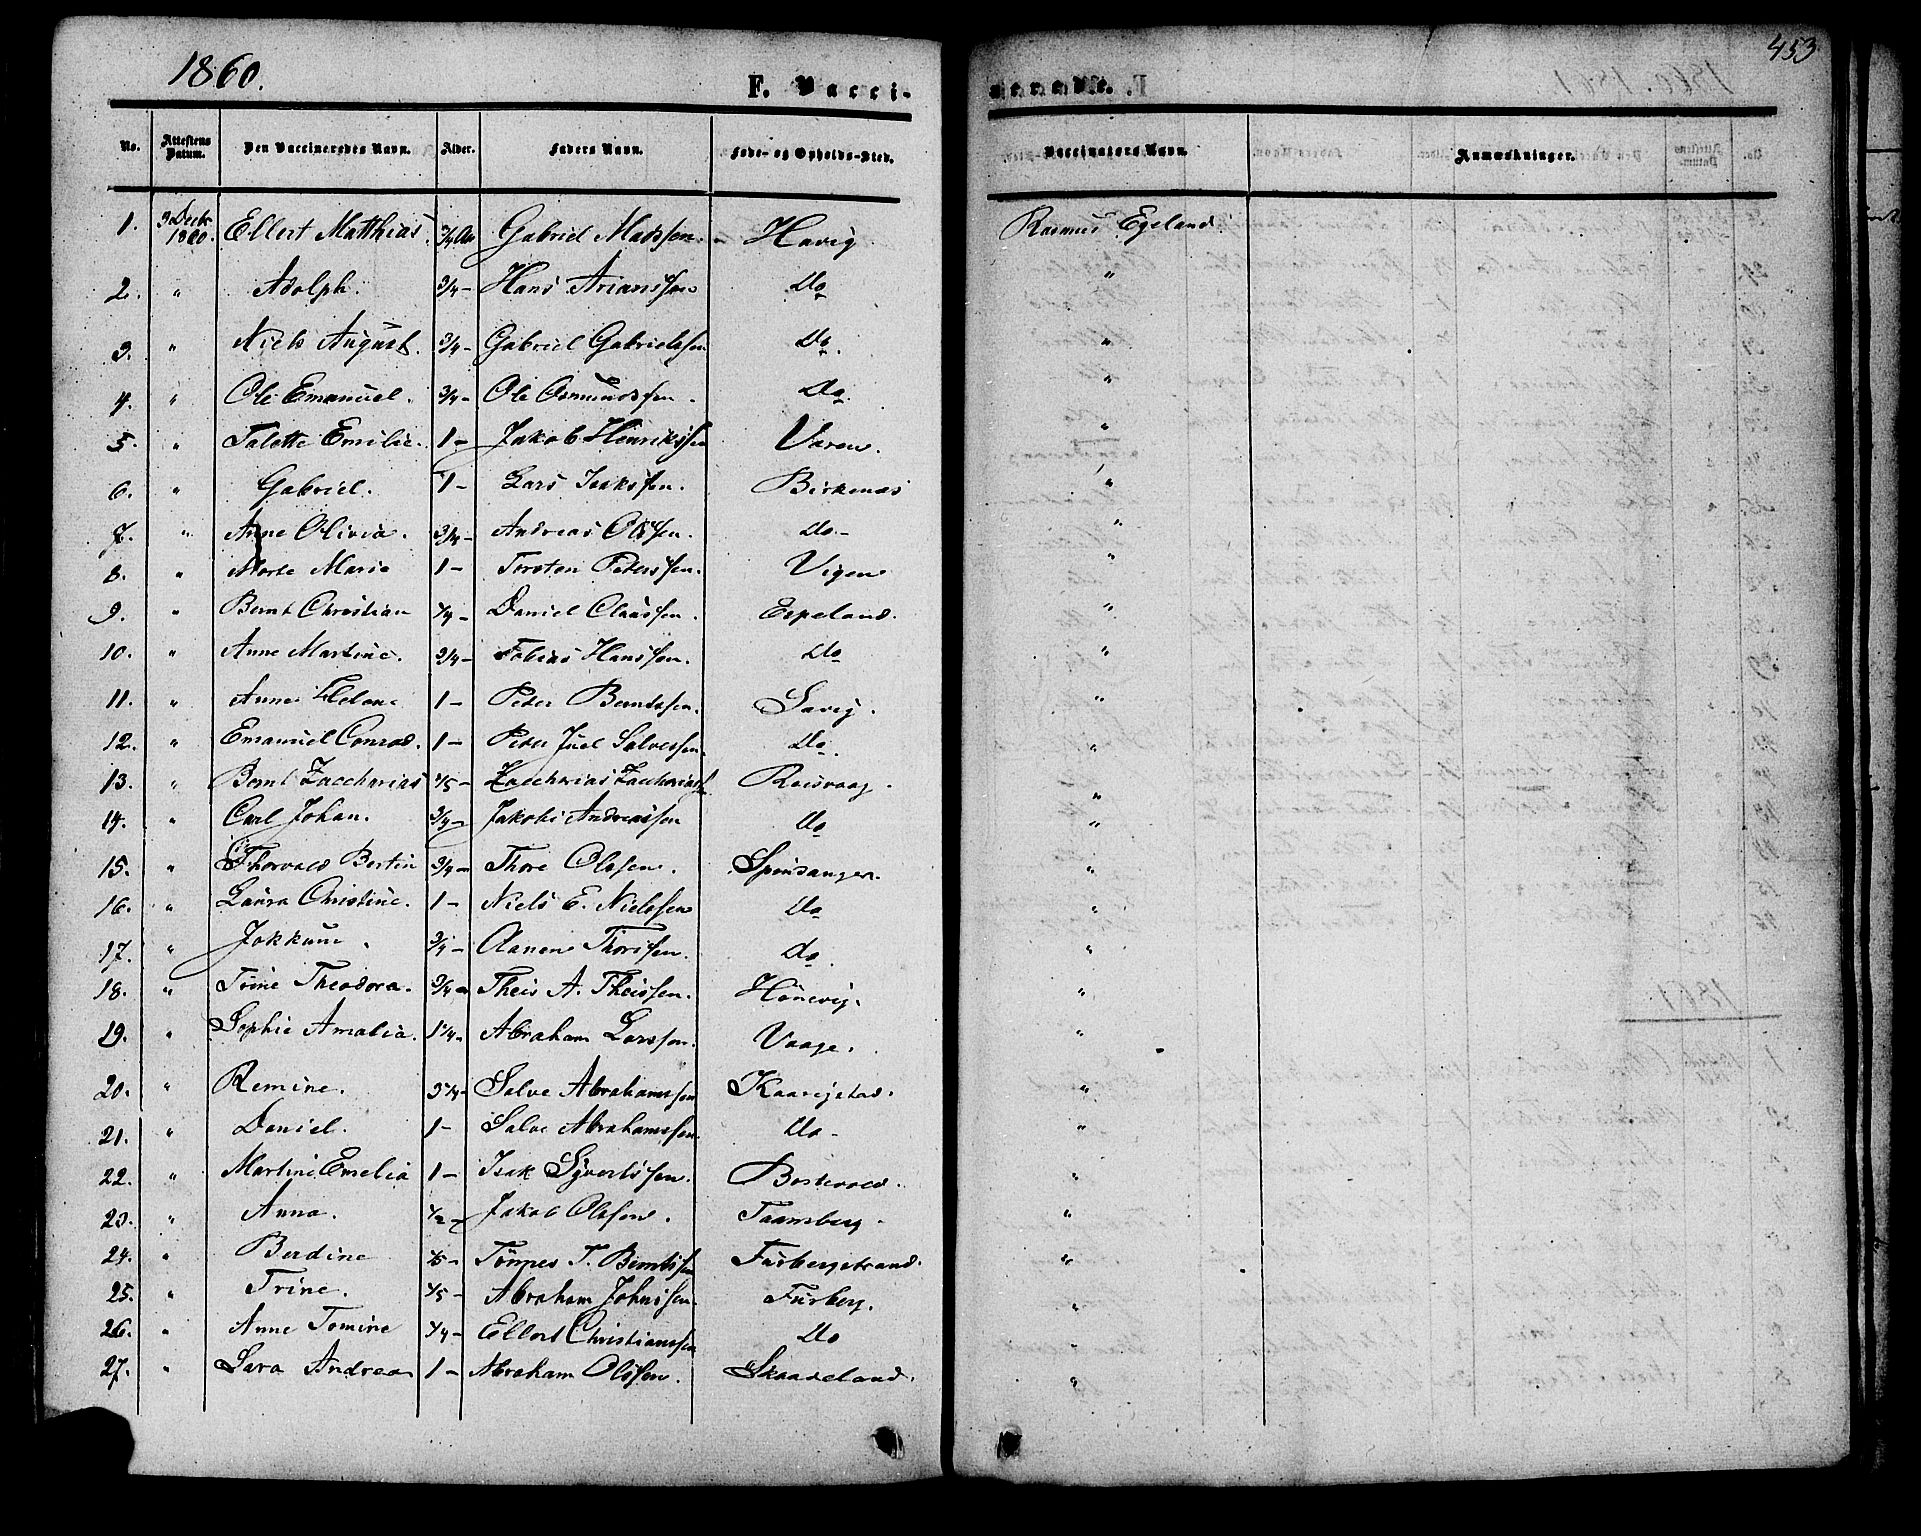 1860.
F. Vacci-
nerede.
453
No. Attestens Datum. Den Vaccineredes Navn. Alder. Faders Navn. Føde- og Opholds-Sted. Vaccinators Navn. Anmærkninger.
1. 3 Decbr 1860. Ellert Matthias. 3/4 Aar Gabriel Madssen. Havig Rasmus Egeland.
2. " Adolph. 3/4 - Hans Arianssen Do "
3. " Niels August. 3/4 - Gabriel Gabrielssen Do. "
4. " Ole Emanuel. 3/4 - Ole Osmundssen. Do. "
5. " Talette Emilie. 1 - Jakob Henrikssen Varen. "
6. " Gabriel. 1 - Lars Isakssen. Birkenæs "
7. " Anne Olivia. 3/4 - Andreas Olssen. do. - "
8. " Marte Marie 1 - Torsten Peterssen. Vigen "
9. " Bernt Christian 1/4 - Daniel Claussen. Espeland. "
10. " Anne Martine. 3/4 - Tobias Hanssen. Do "
11. " Anne Helene 1 - Peder Berntssen. Savig. "
12. " Emanuel Conrad. 1 - Peder Juel Salvessen. Do "
13. " Bernt Zaccharias 4/5 - Zaccharias Zacchariass. Roisvaag. "
14. " Carl Johan. 3/4 - Jakob Andreassen Do "
15. " Thorvald Bertin 3/4 - Thore Olssen. Spindsanger. "
16. " Laura Christine. 1 - Niels E. Nielssen Do "
17. " Jokkum. 3/4 - Aanen Thorissen. do. "
18. " Tomine Theodora. 3/4 - Theis A. Theissen. Hönevig. "
19. " Sophie Amalia. 1 1/4 - Abraham Larssen. Vaage. "
20. " Remine. 3/4 - Salve Abrahamssen Kaarigstad. "
21. " Daniel. 1 - Salve Abrahamssen. Do - "
22. " Martine Emelia 1 - Isak Syvertssen. Bostevold. "
23. " Anna. 1/2 - Jakob Olssen. Taamsberg. "
24. " Berdine 4/5 - Tönnes T. Berntssen Furbergstrand. "
25. " Trine. 4/5 - Abraham Johnssen. Furberg. "
26. " Anne Tomine 1/4 - Ellert Christianssen Do "
27. " Sara Andrea 1 - Abraham Olssen. Skaadeland. "